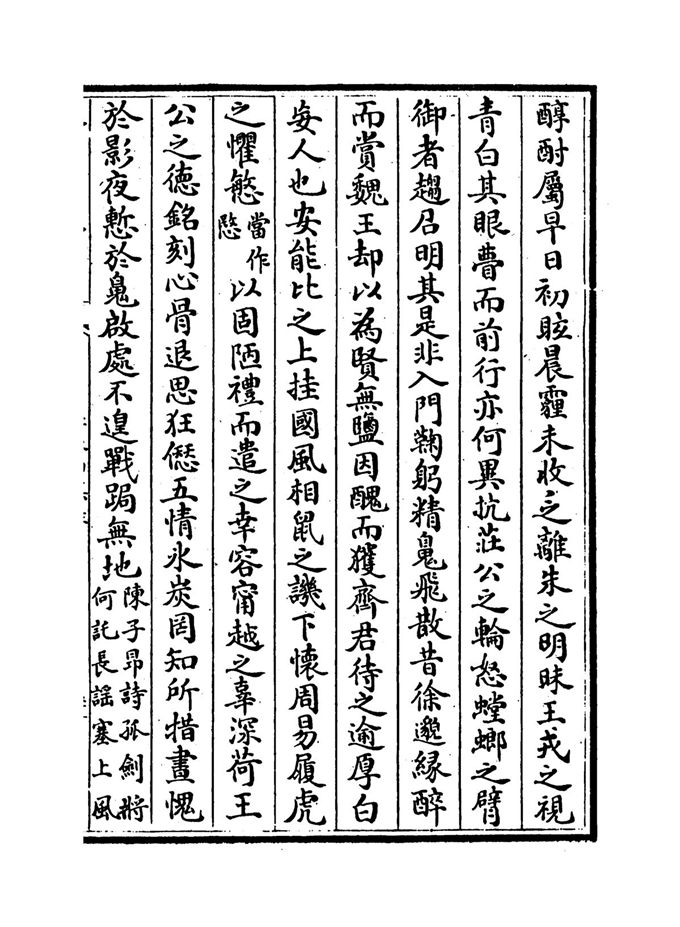 醇酎屬早日初眩晨霾未收乏離朱之明昧王戎之視
青白其眼瞢而前行亦何異抗莊公之輪怒螳螂之臂
御者趨召明其是非入門鞠躬精䰟飛散昔徐邈縁醉
而賞魏王却以為賢無鹽因醜而獲齊君待之逾厚白
妄人也安能比之上挂國風相鼠之譏下懷周易履虎
之懼慜當作愍以固陋禮而遣之幸容甯越之辜深荷王
公之徳銘刻心骨退思狂僁五情氷炭罔知所措晝愧
於影夜慙於䰟啟處不遑戰跼無地陳子昻詩孤劍將何託長謡塞上風